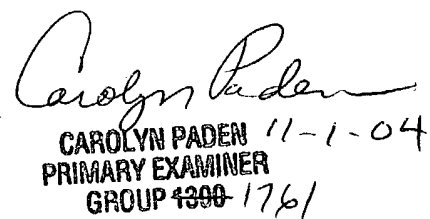 Carolyn Paden
CAROLYN PADEN 11-1-04
PRIMARY EXAMINER
GROUP 1300 1761